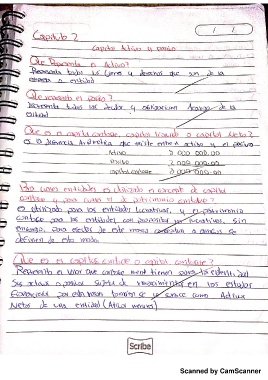 Capitulo 2
Capital Activo y pasivo
Que Representa el Activo?
Representa todos los bienes y derechos que son de la
entidad
Que representa el pasivo?
Representa todos los deudas y obligaciones Acargo de la
entidad
Que es el capital contable, capital liquido o capital Neto?
Es la diferencia Aritmetica que existe entre el activo y el pasivo
Activo
Pasivo
capital contable
Para que entidades es utilizado el concepto de capital
contable y para cuales el de patrimonio contable?
Es utilizado para las entidades lucrativas, y el patrimonio
contable para las entidades con propositos no lucrativos, sin
embargo, para efectos de este modo
definen de este modo
Que es el capital contable o capital contable?
Representa el valor que contable mente tienen para la entidad,
sus activos
Financieros por esta razon tambien se le conoce como Activos
Netos de una entidad (Activos menos)
Scribe
Scanned by CamScanner